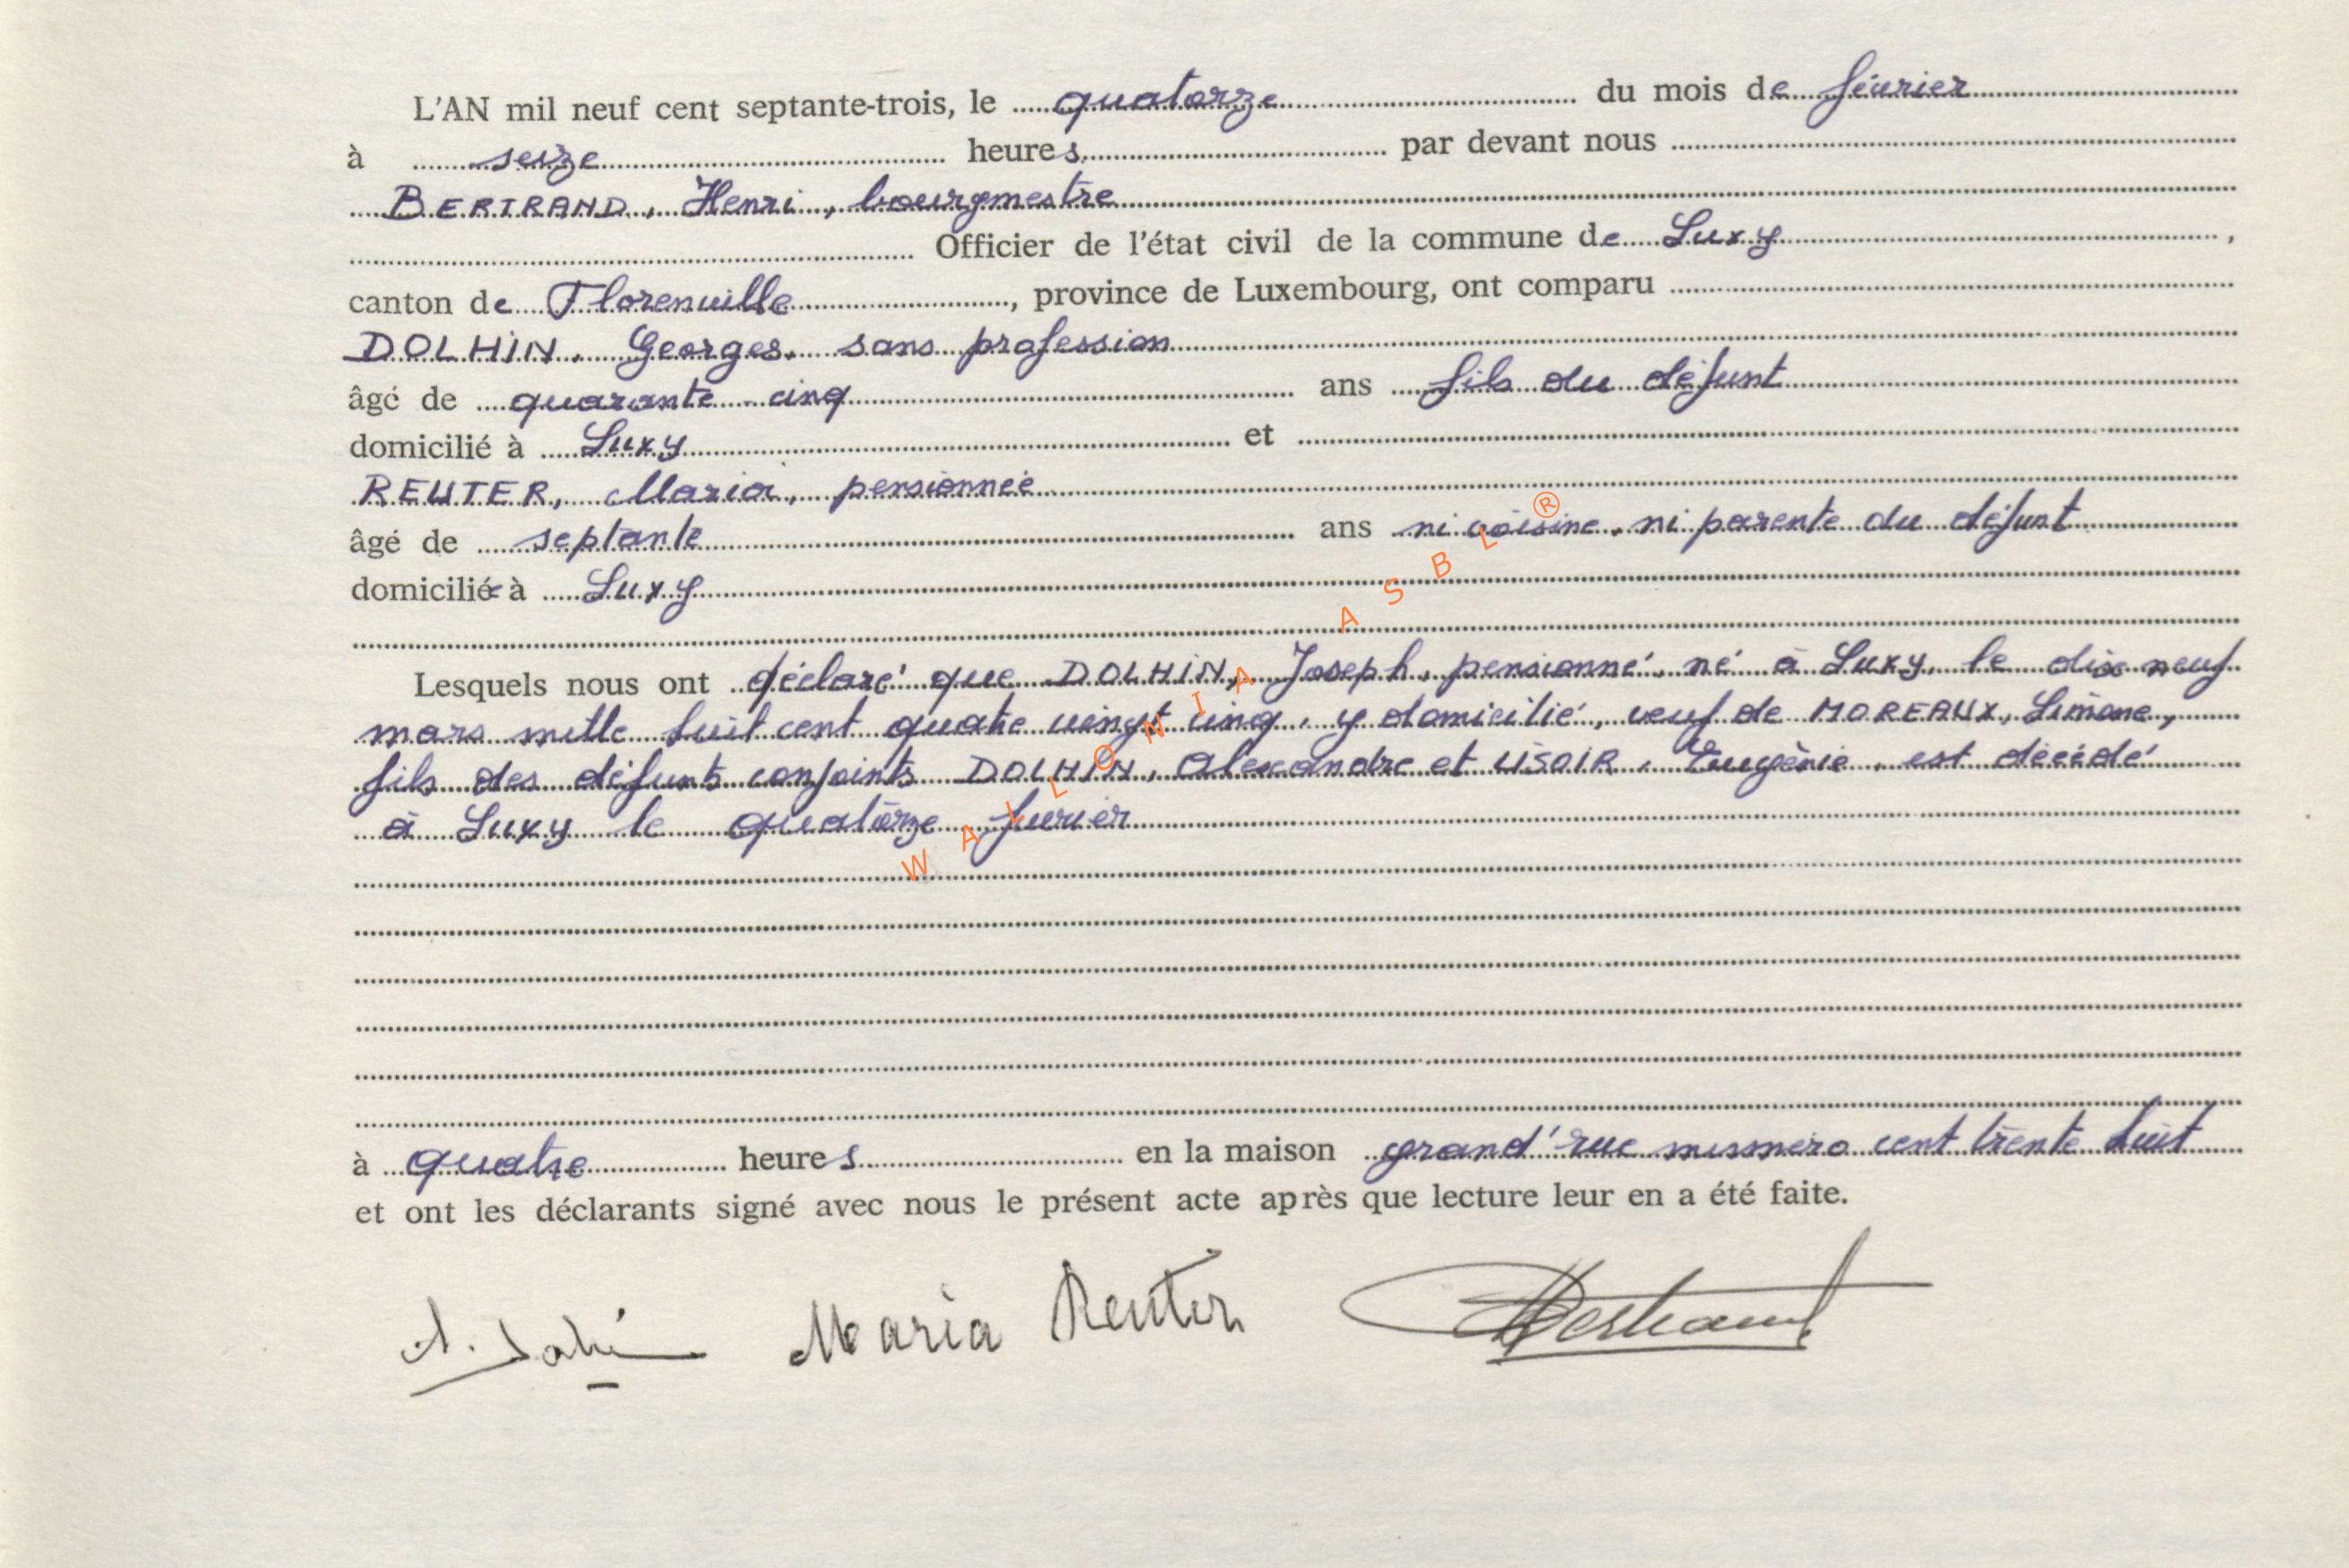 L'AN mil neuf cent septante-trois, le quatorze du mois de février
à seize heures par devant nous
BERTRAND, Henri, bourgmestre
Officier de l'état civil de la commune de Suxy,
canton de Florenville, province de Luxembourg, ont comparu
DOLHIN, Georges, sans profession
âgé de quarante cinq ans fils du défunt
domicilié à Suxy et
REUTER, Maria, pensionnée
âgé de septante ans ni voisine, ni parente du défunt
domiciliée à Suxy
Lesquels nous ont déclaré que DOLHIN, Joseph, pensionné, né à Suxy, le dix neuf
mars mille huit cent quatre vingt cinq, y domicilié, veuf de MOREAUX, Simone,
fils des défunts conjoints DOLHIN, Alexandre et LISOIR, Eugènie, est décédé
à Suxy le quatorze furier
à quatre heures en la maison grand'rue numméro cent trente huit
et ont les déclarants signé avec nous le présent acte après que lecture leur en a été faite.
Maria Reuter Bertrand
WALLONIA ASBL ®